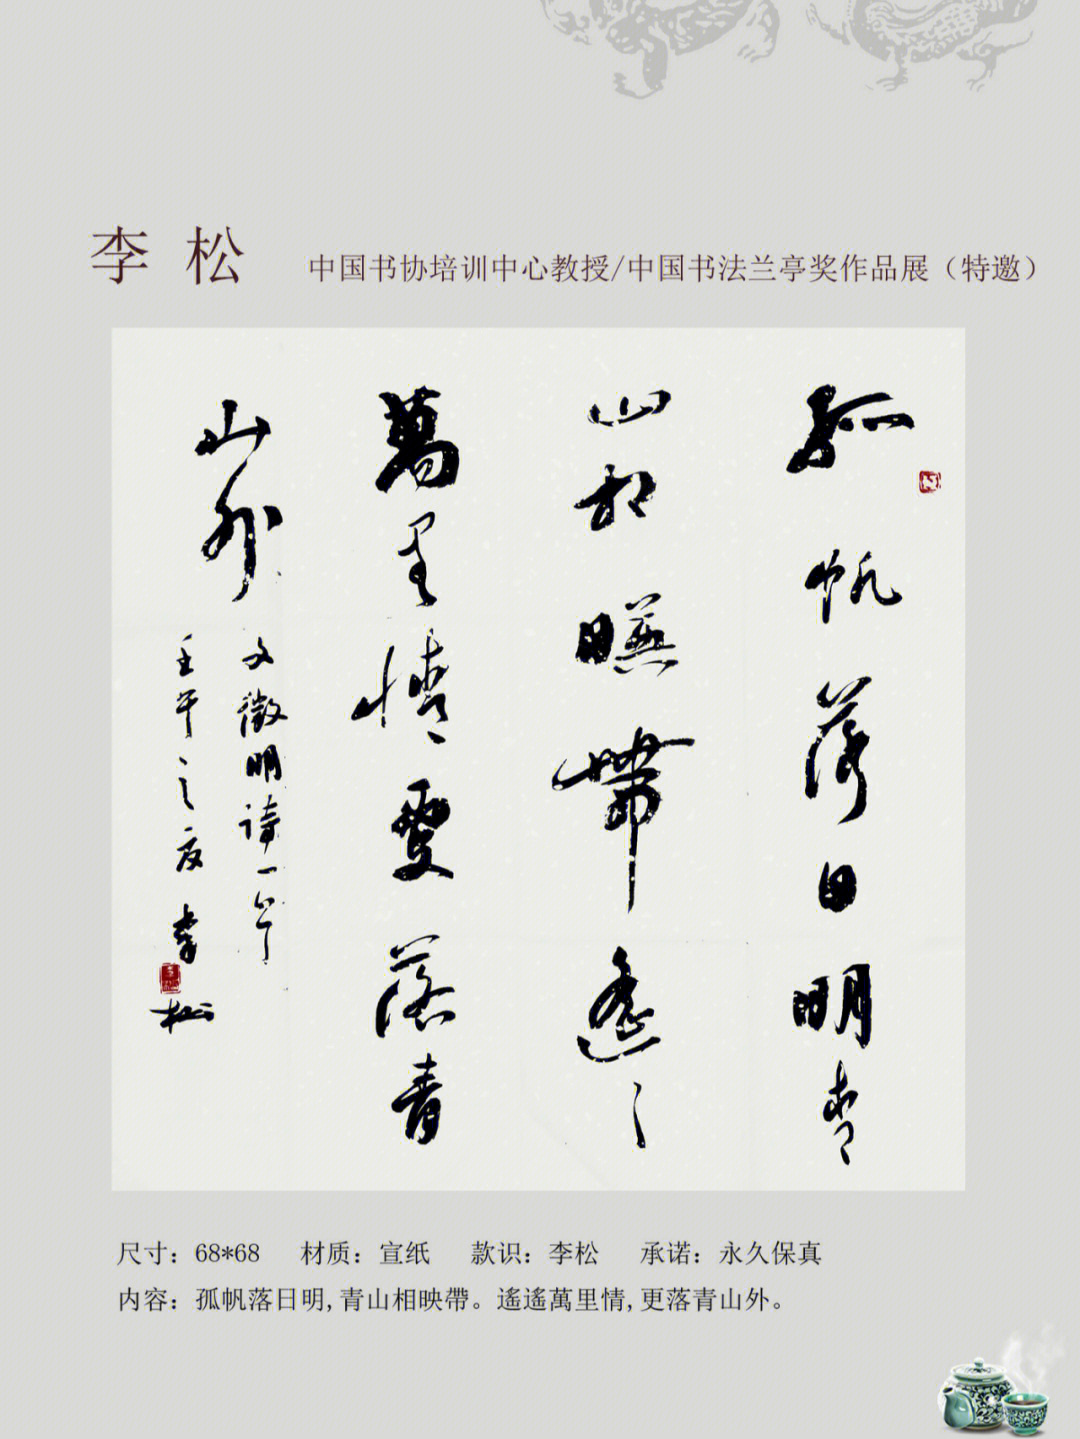 李松
中国书协培训中心教授/中国书法兰亭奖作品展（特邀）
孤帆落日明青
山相暎帶遙〻
萬里情更落青
山外
文徵明詩一首
壬午之夏李松
尺寸：68*68 材质：宣纸 款识：李松 承诺：永久保真
内容：孤帆落日明,青山相映帶。遙遙萬里情,更落青山外。